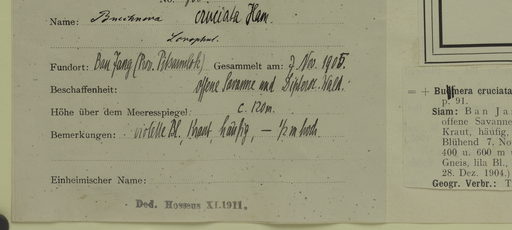 Name: Buechnera cruciata Ham.
Scrophul.
Fundort: Ban Jang (Prov. Pitsanulok) Gesammelt am: 7. Nov. 1905.
Beschaffenheit: offene Savanne und Dipteroc. Wald.
Höhe über dem Meeresspiegel: c. 120m.
Bemerkungen: violette Bl., Kraut, häufig, — 1/2 m hoch.
Einheimischer Name:
Ded. Hosseus XI.1911.
= + Buchnera cruciata
p. 91.
Siam: Ban Ja
offene Savanne
Kraut, häufig,
Blühend 7. No
400 u. 600 m
Gneis, lila Bl.,
28. Dez. 1904.)
Geogr. Verbr.: T